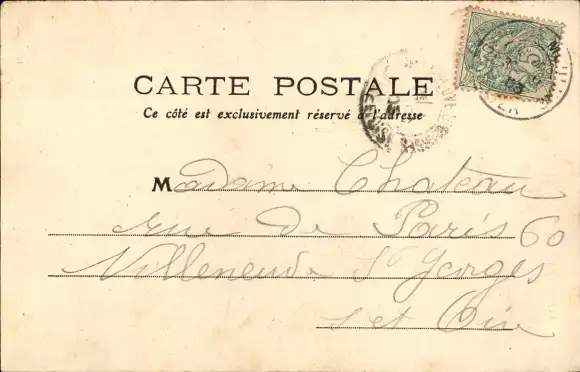 CARTE POSTALE
Ce côté est exclusivement réservé à l'adresse
Madame Chateau
rue de Paris 60
Villeneuve St Georges
s et Oise